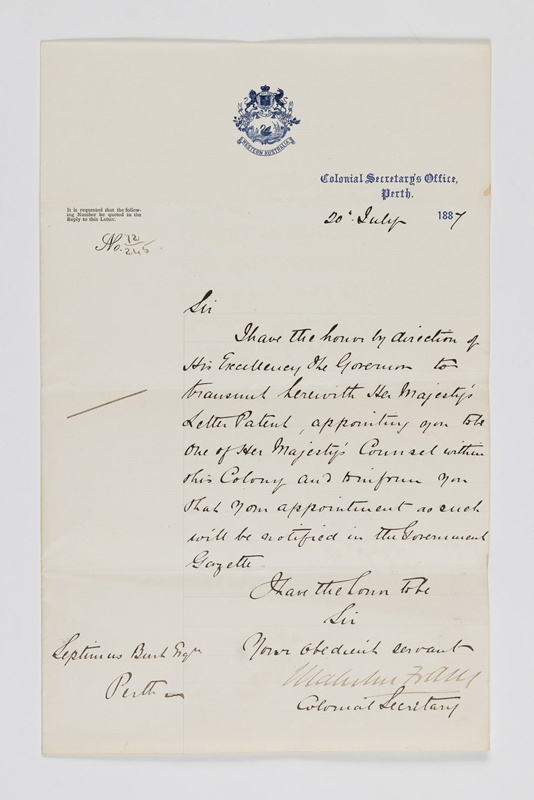 WESTERN AUSTRALIA
Colonial Secretary's Office,
Perth.
20th July 1887
It is requested that the follow-
ing Number be quoted in the
Reply to this Letter.
No. 12/245
Sir
I have the honor by direction of
His Excellency the Governor to
transmit herewith Her Majesty's
Letter Patent, appointing you to be
One of Her Majesty's Counsel within
this Colony and to inform you
that your appointment as such
will be notified in the Government
Gazette
I have the honor to be
Sir
Your obedient servant
Malcolm Fraser
Colonial Secretary
Septimus Burt Esqre
Perth